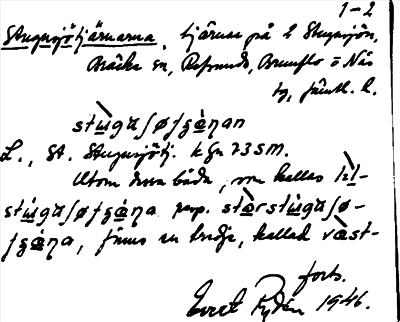 1-2
Stugusjötjärnarna, tjärnar på L Stugusjön,
Bräcke sn, Refsunds, Brunflo o Näs
tg, Jämtl. l.
stùguʃøʃɕæ̀nan
L., St. Stugusjötj. k Gn 73 SM.
Utom dessa båda, som kallas lìl-
stùguʃøʃɕæ̀na resp. stòrstùguʃø-
ʃɕæ̀na, finns en tredje, kallad væst-
forts.
Evert Rydén 1946.